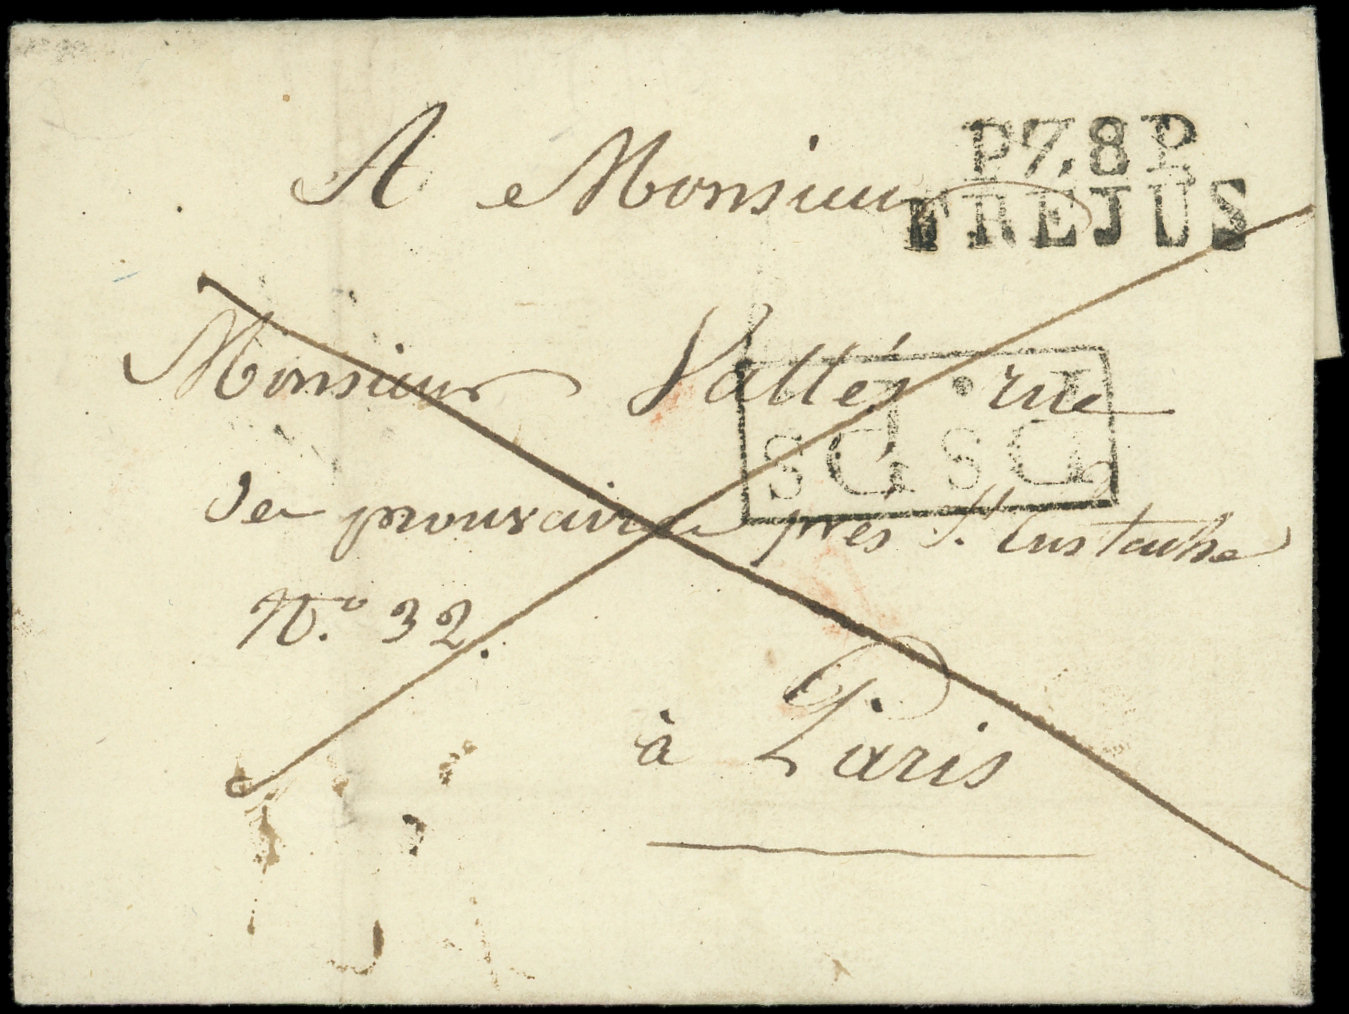 P.78.P.
FREJUS
A Monsieur
Monsieur Vallée rue
de prouvaire prés St Eustache
N.o 32.
à Paris